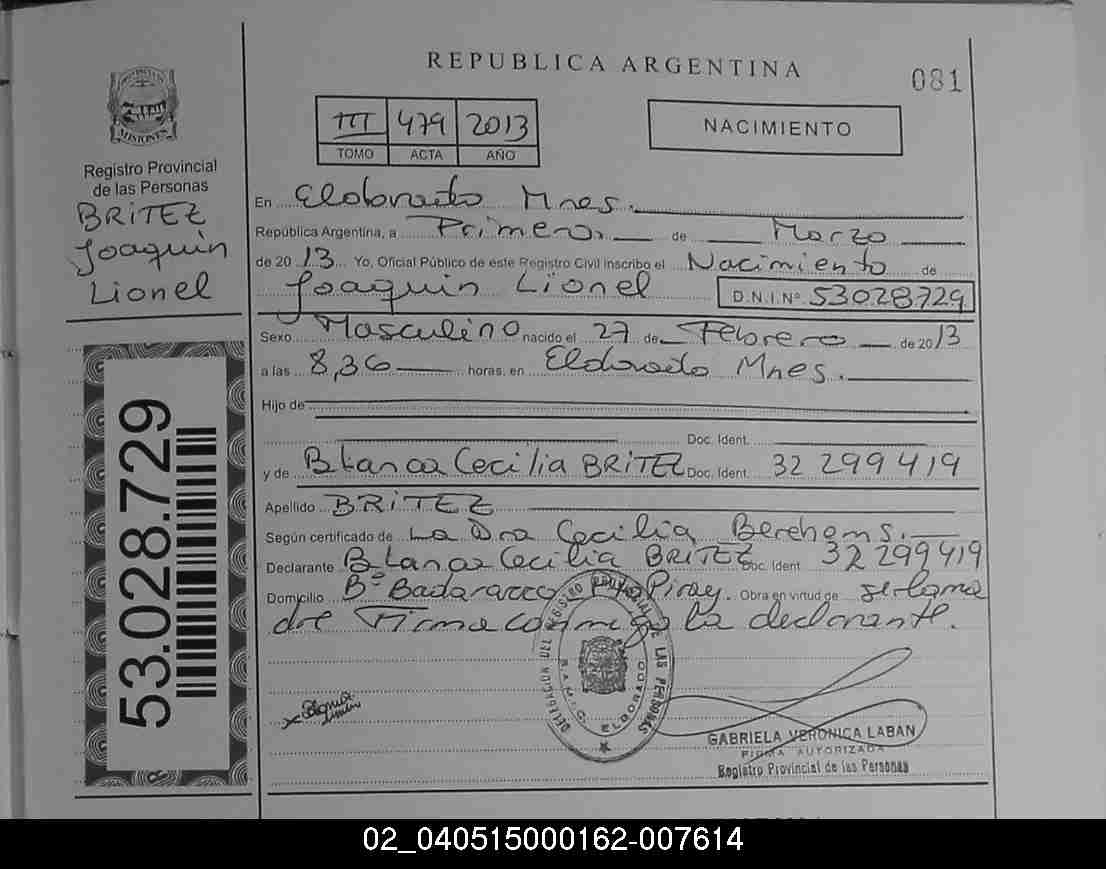 REPUBLICA ARGENTINA
081
PROVINCIA DE
MISIONES
Registro Provincial
de las Personas
BRITEZ
Joaquin
Lionel
53.028.729
III 479 2013
TOMO ACTA AÑO
NACIMIENTO
En Eldorado Mnes.
República Argentina, a Primero. de Marzo
de 2013 Yo, Oficial Público de este Registro Civil inscribo el Nacimiento de
Joaquin Lionel D.N.I.Nº 53028729
Sexo Masculino nacido el 27 de Febrero de 2013
a las 8,36 horas, en Eldorado Mnes.
Hijo de
Doc. Ident.
y de Blanca Cecilia BRITEZ Doc. Ident. 32 299 419
Apellido BRITEZ
Según certificado de La Dra Cecilia
Declarante Blanca Cecilia BRITEZ Doc. Ident 32 299 419
Domicilio Bº Badaracco Piray. Obra en virtud de ser la ma
dre Firma conmigo la declarante.
DELEGACION DEL REGISTRO PROVINCIAL DE LAS PERSONAS
ELDORADO
GABRIELA VERONICA LABAN
FIRMA AUTORIZADA
Registro Provincial de las Personas
02_040515000162-007614